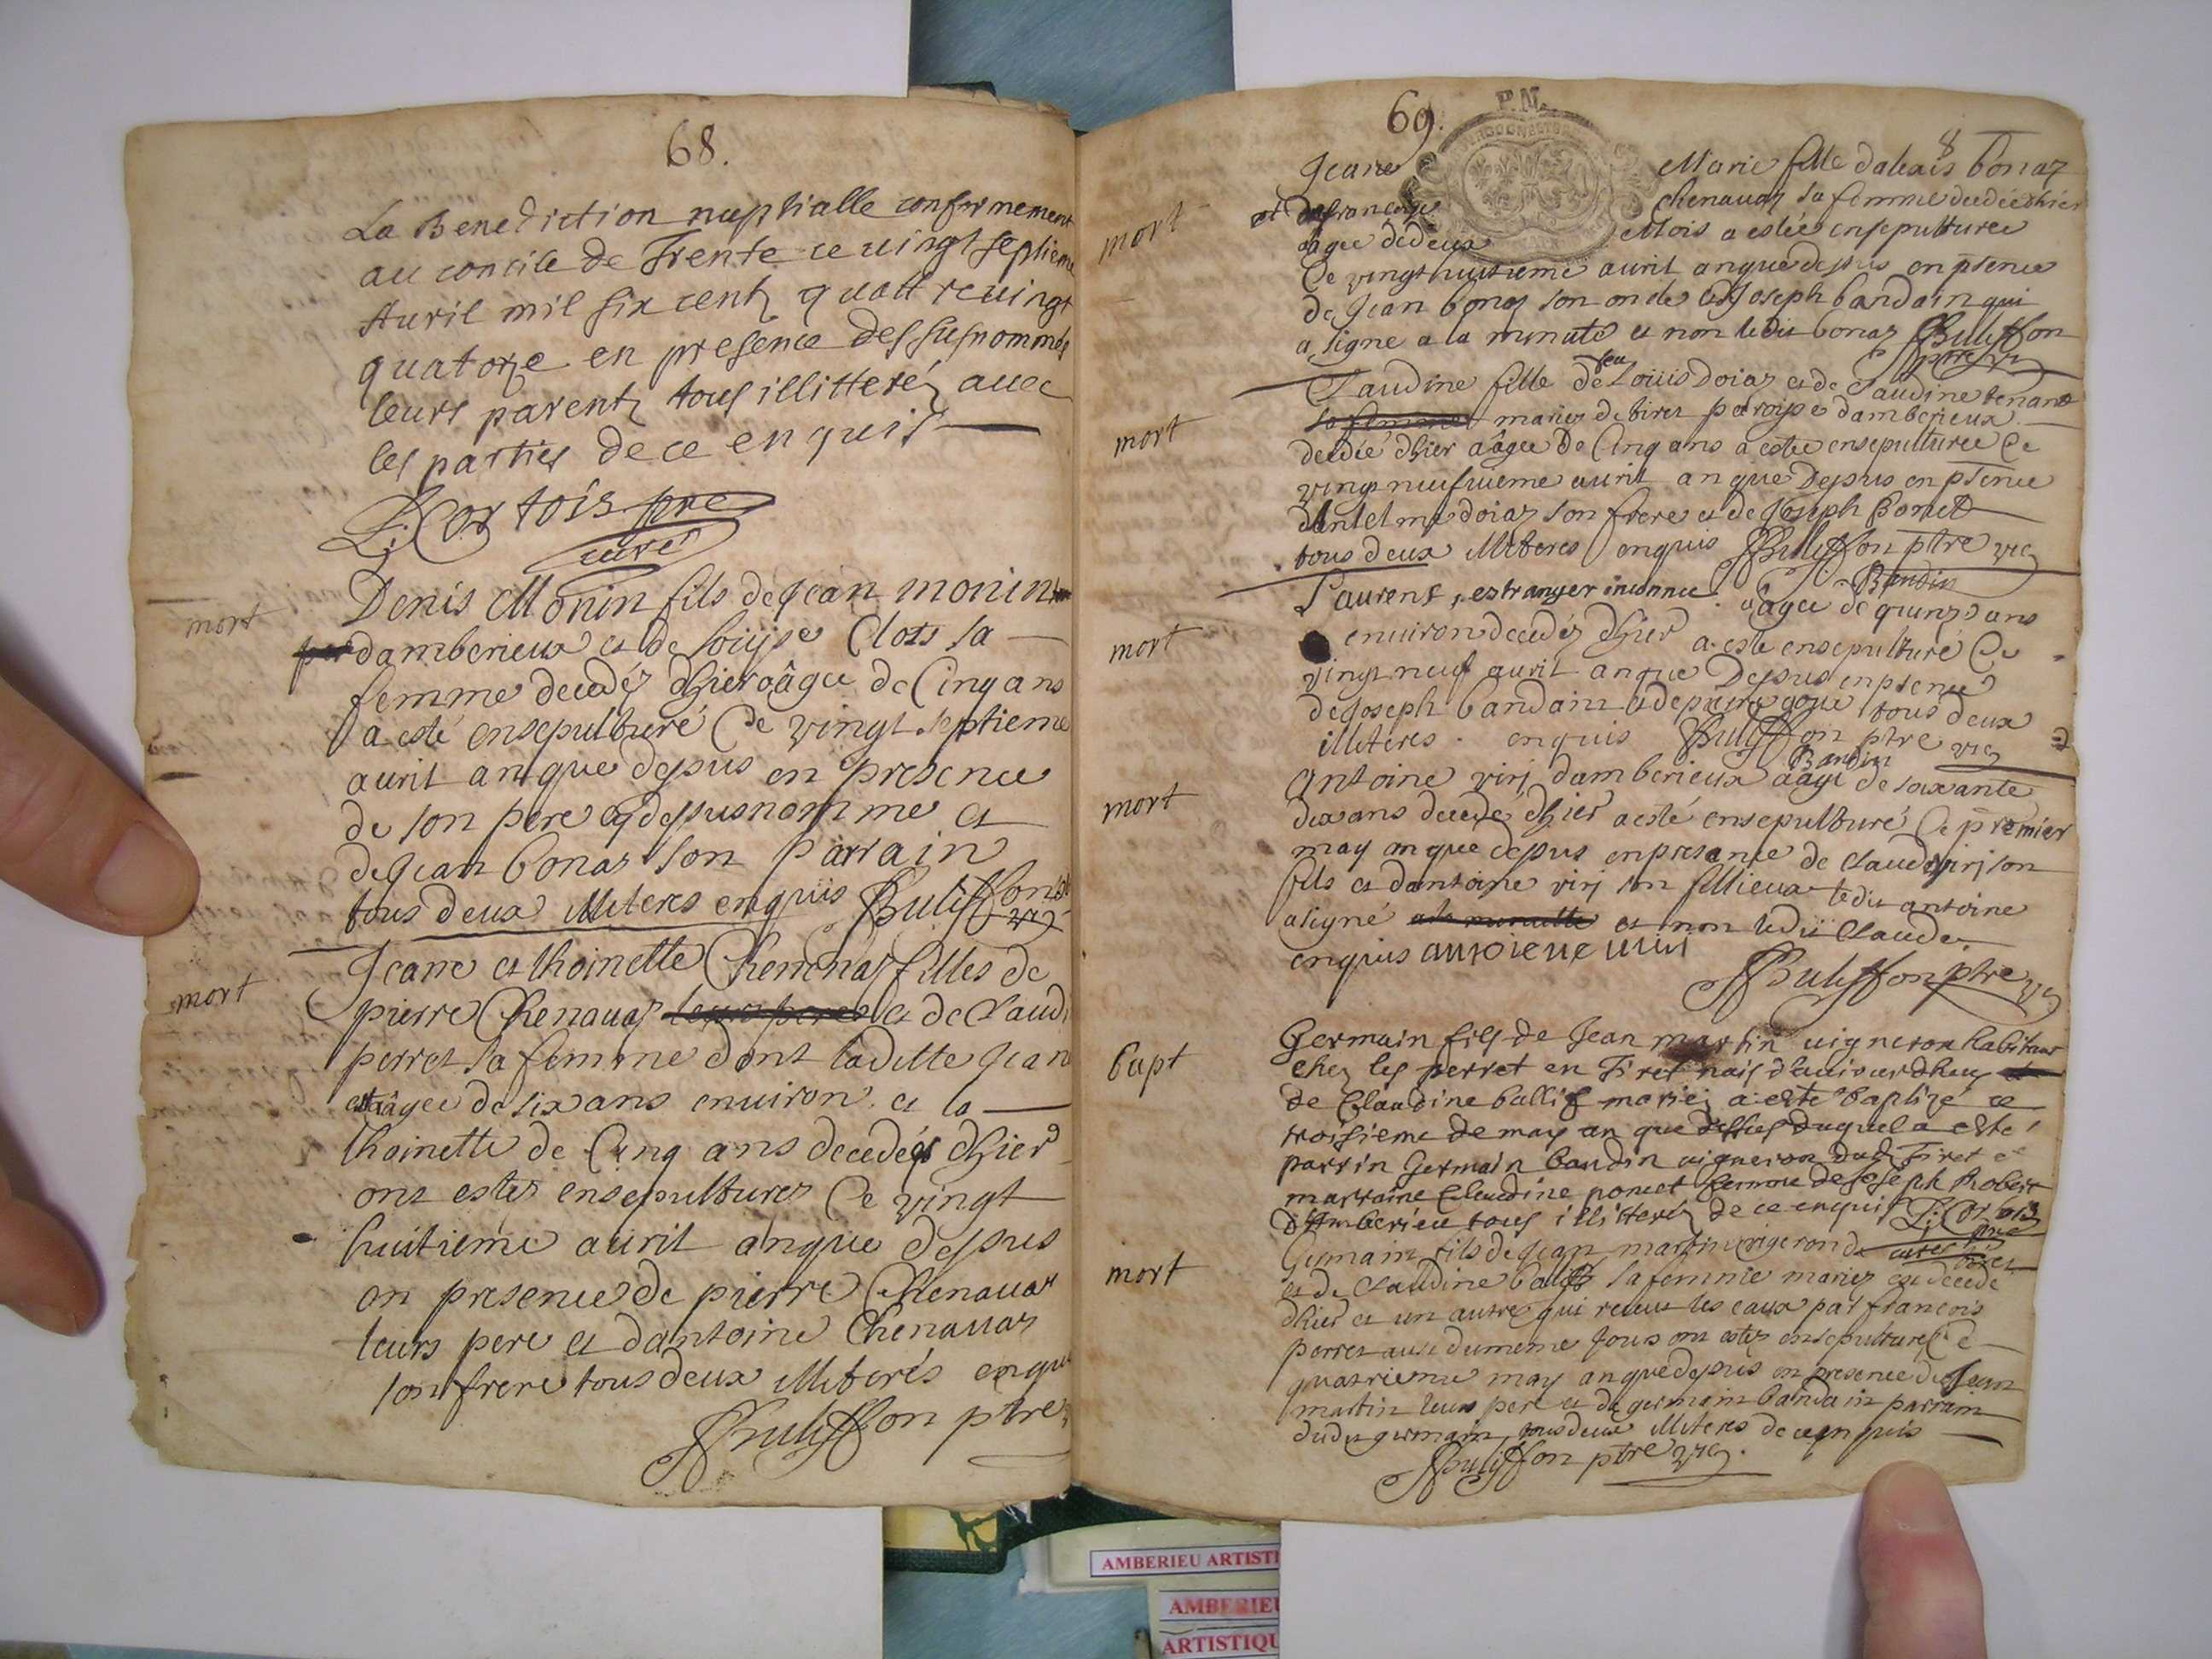 68.
La Benediction nuptialle conformement
au concile de Trente ce vingt septieme
Auril mil six centz quatt revingt
quatorze en presence des susnommés
leurs parentz tous illitteréz auec
les parties de ce enquis
L: Cortois pre
curé
mort
Denis Monin fils de jean monin
damberieux et de Clots sa
femme decedéz dhier aâgee de Cinq ans
a esté ensepulturé Ce vingt septieme
auril an que dessus en presence
de son pere dessusnomme et
de jean bonaz son parrain
tous deux illiteres enquis Buliffon
mort
Jeane et thoinette Chenauaz filles de
pierre Chenauaz leurs pere et de Claudi
perret sa femme dont laditte jean
aâgee de six ans enuiron et la
thoinette de Cinq ans decedées dhier
ont estez ensepulturez Ce vingt
huitieme auril an que dessus
en presence de pierre Chenauaz
leurs pere et dantoine Chenauaz
son frere tous deux illiterés enqui
Buliffon ptre
69.
P. M.
8
Jeane Marie fille dalexis bonaz
mort
et de francoise chenauaz sa femme decedée hier
aagee de deux Mois a estée ensepulturee
Ce vingt huitieme auril an que dessus en psence
de jean bonaz son oncle et joseph bandain qui
a signe a la minute et non ledit bonaz Buliffon
ptre vic
Claudine fille de feu Louis Doiaz et de Claudine tenand
mort
sa femme mariez de tiret paroisse damberieux
decedée dhier aâgee de Cinq ans a estee ensepulturee Ce
vingt neufuieme auril an que Dessus en psence
dantelme doiaz son frere et de joseph Bonet
tous deux illiteres enquis Buliffon ptre vic
Bandin
Laurent, estranger inconnue aâgee de quinze ans
mort
enuiron decedéz dhier a este ensepulturé Ce
vingt neuf auril an que Dessus en psence
de joseph bandain et de pierre tous deux
illiteres enquis Buliffon ptre vic
Bandin
mort
Antoine virj damberieux aâgé de soixante
dix ans decedé dhier a esté ensepulturé Ce premier
may an que dessus en presance de claude virj son
fils et dantoine virj son fillieux ledit antoine
a signé a la minutte et non ledit Claude
enquis antoiene uiri
Buliffon ptre vic
bapt
Germain fils de Jean martin uigneron habitant
chez les perret en Tiret nais daujourdhuy
de Claudine ballif mariez a este baptizé ce
troisieme de may an que dessus duquel a este
parrin Germain baudin uigneron dud Tiret et
marraine Claudine poncet femme de joseph Robert
d'Amberieu tous illitteréz de ce enquis L: Cortois
pre
curé
mort
Germain fils de Jean martin vigeron de tiret
et de Claudine ballif sa femme mariez est decede
dhier et un autre qui receut les eaux par francois
perret aussi du meme jour ont estez ensepulturez Ce
quatrieme may an que dessus en presence de Jean
martin leurs pere et de germain bandain parrain
dudit germain tous deux illiteres de ce enquis
Buliffon ptre vic.
AMBERIEU ARTISTI
AMBERIEU
ARTISTIQU